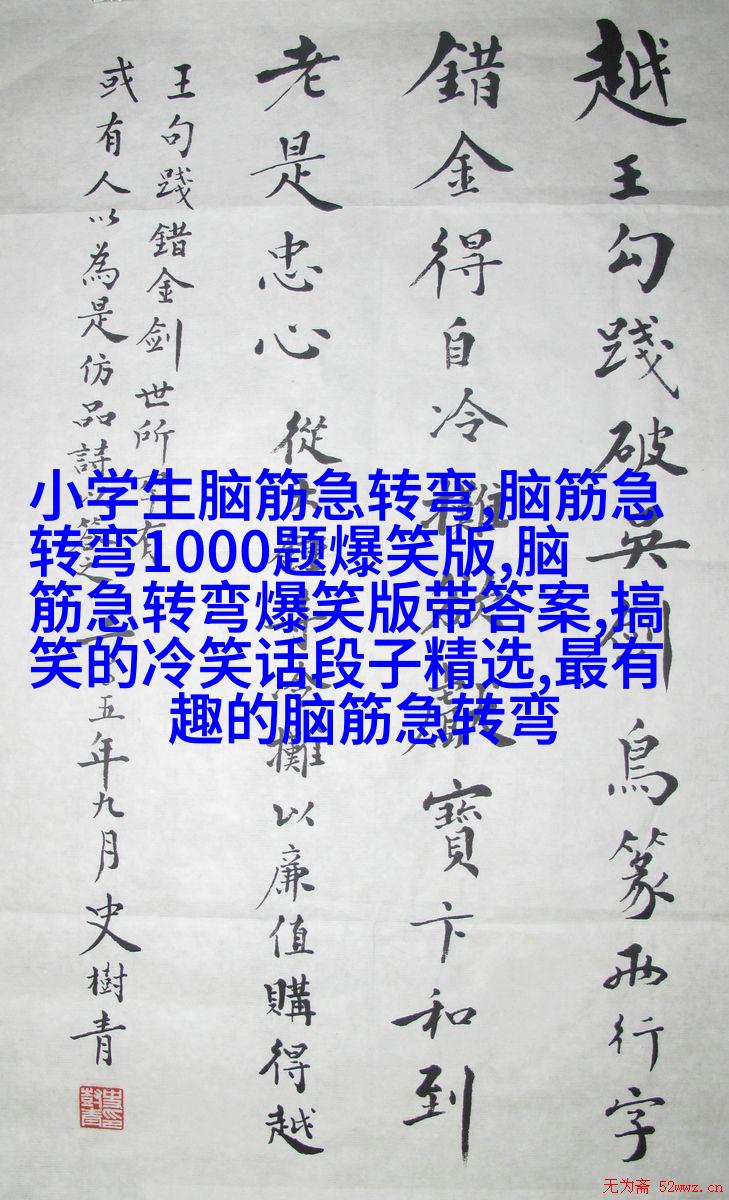 越王勾踐破吳剑鳥篆兩行字
錯金得自冷寶卞和到
老是忠心 從攤以廉值購得越
王句踐錯金剑世所有
或有人以為是仿品詩以答之五年九月史樹青
小学生脑筋急转弯,脑筋急
转弯1000题爆笑版,脑
筋急转弯爆笑版带答案,搞
笑的冷笑话段子精选,最有
趣的脑筋急转弯
无为斋 52wwz.cn